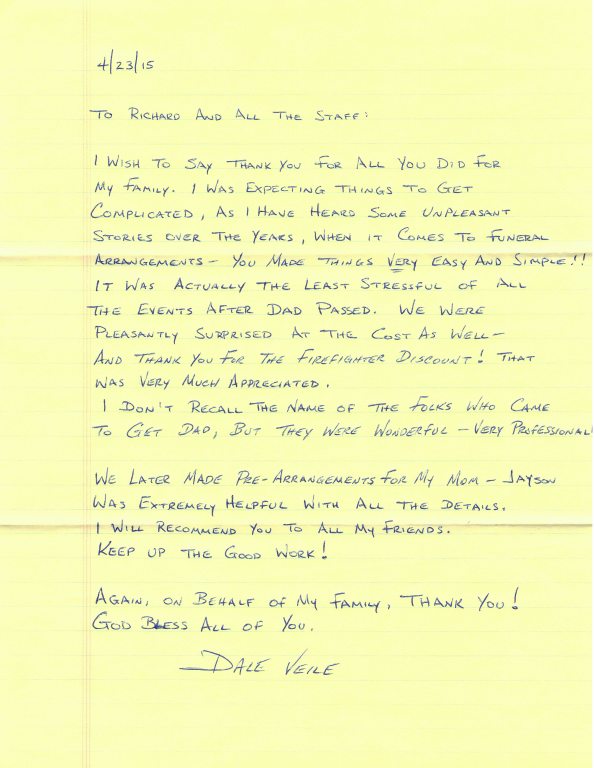 4/23/15
To Richard And All The Staff:
I Wish To Say Thank You For All You Did For
My Family. I Was Expecting Things To Get
Complicated, As I Have Heard Some Unpleasant
Stories Over The Years, When it Comes To Funeral
Arrangements - You Made Things Very Easy And Simple!!
It Was Actually The Least Stressful of All
The Events After Dad Passed. We Were
Pleasantly Surprised At The Cost As Well -
And Thank You For The Firefighter Discount! That
Was Very Much Appreciated.
I Don't Recall The Name of The Folks Who Came
To Get Dad, But They Were Wonderful - Very Professional!
We Later Made Pre-Arrangements For My Mom - Jayson
Was Extremely Helpful With All The Details.
I Will Recommend You To All My Friends.
Keep up The Good Work!
Again, on Behalf of My Family, Thank You!
God Bless All of You.
Dale Veile